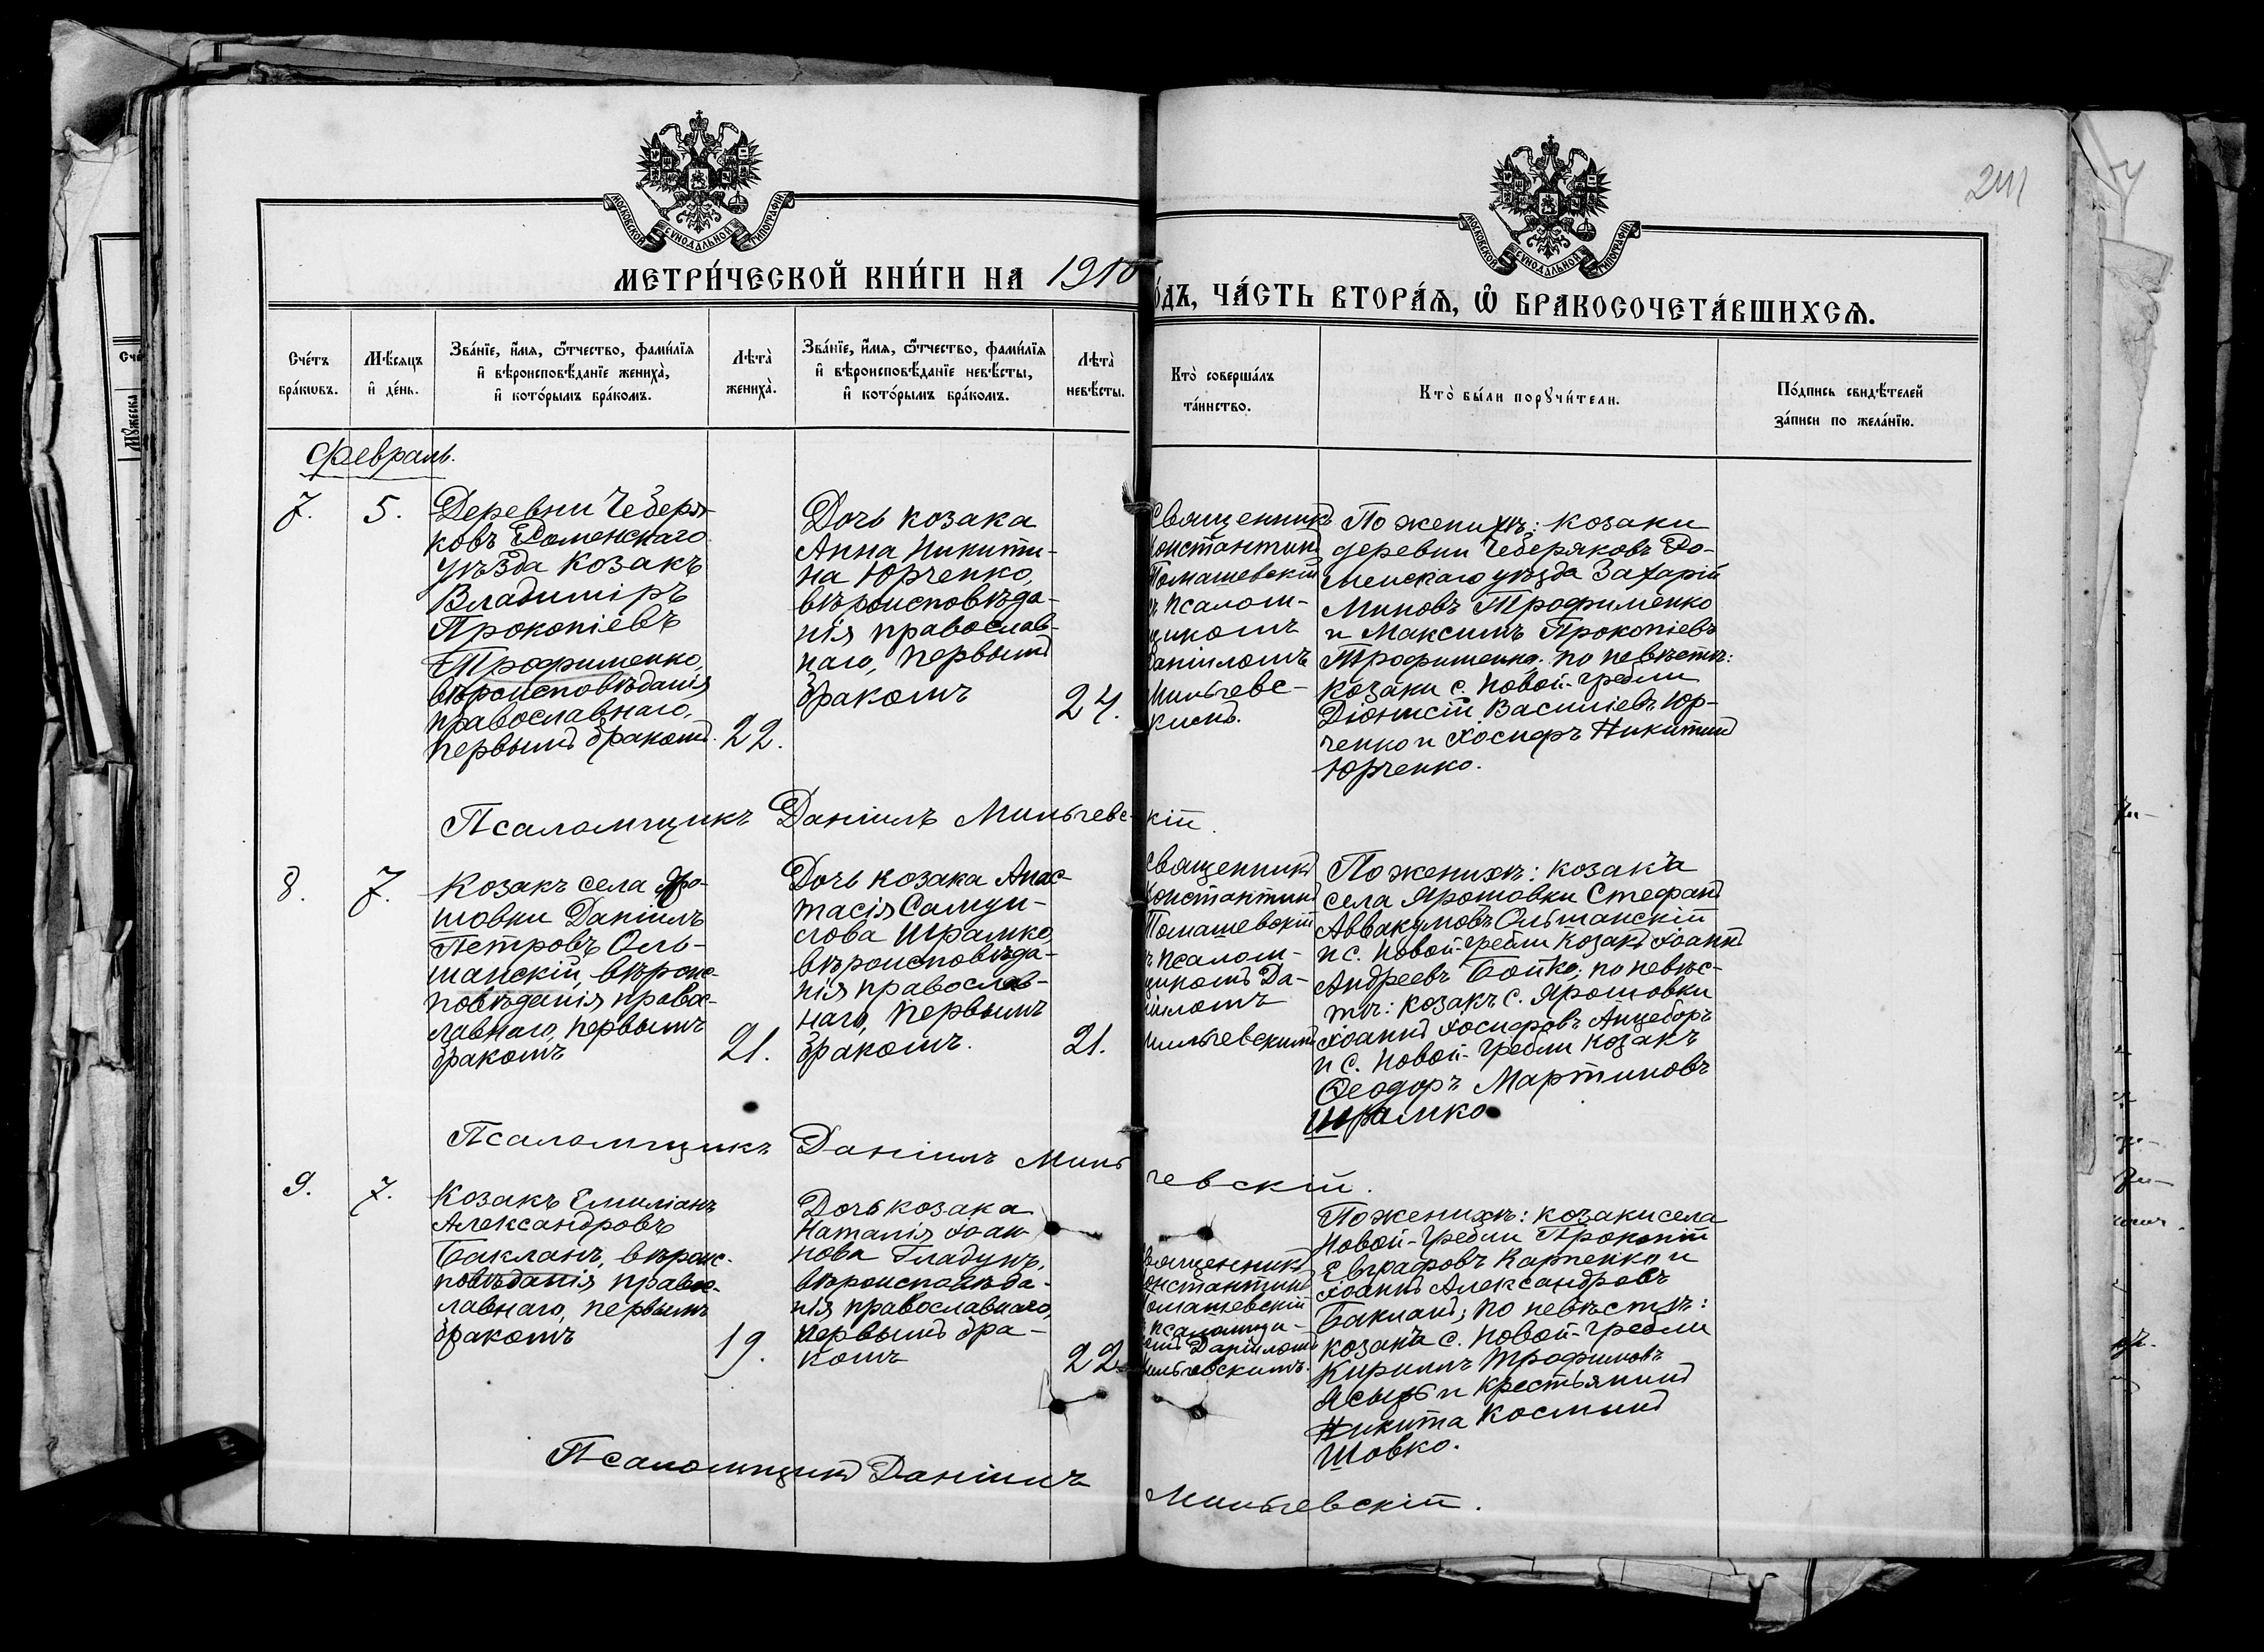 241
МОСКОВСКОЙ СѴНОДАЛЬНОЙ ТИПОГРАФІИ
МОСКОВСКОЙ СѴНОДАЛЬНОЙ ТИПОГРАФІИ
МЕТРИ́ЧЕСКОЙ КНИ́ГИ НА 1910
О́ДЪ, ЧА́СТЬ ВТОРА́Ѧ, Ѡ҆ БРАКОСОЧЕТА́ВШИХСѦ.
Сче́тъ
бра́кѡвъ.
Мѣ́сѧцъ
и҆ де́нь.
Зва́нїе, и҆́мѧ, ѻ҆́тчество, фамѝлїѧ
и҆ вѣроисповѣ́данїе жениха̀,
и҆ кото́рымъ бра́комъ.
Лѣта̀
жениха̀.
Зва́нїе, и҆́мѧ, ѻ҆́тчество, фамѝлїѧ
и҆ вѣроисповѣ́данїе невѣ́сты,
и҆ кото́рымъ бра́комъ.
Лѣта̀
невѣ́сты.
Кто̀ соверша́лъ
та́инство.
Кто̀ бы́ли порꙋчи́тели.
По́дпись свидѣ́телей
за́писи по жела́нїю.
Февраль.
7.
5.
Деревни Чеберя-
ковъ Роменскаго
уѣзда козакъ
Владиміръ
Прокопіевъ
Трофименко,
вѣроисповѣданія
православнаго,
первымъ бракомъ.
22.
Дочь козака
Анна Никити-
на Юрченко,
вѣроисповѣда-
нія православ-
наго, первымъ
бракомъ
24.
Священникъ
Константинъ
Томашевскій
съ псалом-
щикомъ
Даніиломъ
Мильчевс-
кимъ.
По женихѣ: козаки
деревни Чеберяковъ Ро-
менскаго уѣзда Захарій
Миновъ Трофименко
и Максимъ Прокопіевъ
Трофименко. по невѣстѣ:
козаки с. Новой-Гребли
Діонисій Василіевъ Юр-
ченко и Іосифъ Никитинъ
Юрченко.
Псаломщикъ Даніилъ Мильчевс-кій.
8.
7.
Козакъ села Яро-
шовки Даніилъ
Петровъ Оль-
шанскій, вѣроис-
повѣданія право-
славнаго, первымъ
бракомъ
21.
Дочь козака Анас-
тасія Самуи-
лова Шрамко,
вѣроисповѣда-
нія православ-
наго, первымъ
бракомъ.
21.
Священникъ
Константинъ
Томашевскій
съ псалом-
щикомъ Да-
ніиломъ
Мильчевскимъ
По женихѣ: козакъ
села Ярошовки Стефанъ
Аввакумовъ Ольшанскій
и с. Новой-Гребли козакъ Іоаннъ
Андреевъ Бойко; по невѣс-
тѣ: козакъ с. Ярошовки
Іоаннъ Іосифовъ Анцеборъ
и с. Новой-Гребли козакъ
Ѳеодоръ Мартиновъ
Шрамко
Псаломщикъ Даніилъ Миль
чевскій.
9.
7.
Козакъ Емиліанъ
Александровъ
Бакланъ, вѣроис-
повѣданія право-
славнаго, первымъ
бракомъ
19.
Дочь козака
Наталія Іоан-
нова Гладунъ,
вѣроисповѣда-
нія православнаго,
первымъ бра-
комъ
22
Священникъ
Константинъ
Томашевскій
съ псаломщи-
комъ Даніиломъ
Мильчевскимъ.
По женихѣ: козаки села
Новой-Гребли Прокопій
Евграфовъ Карпенко и
Іоаннъ Александровъ
Бакланъ; по невѣстѣ:
козакъ с. Новой-Гребли
Кириллъ Трофимовъ
и крестьянинъ
Никита Косминъ
Шовко.
Псаломщикъ Даніилъ
Мильчевскій.